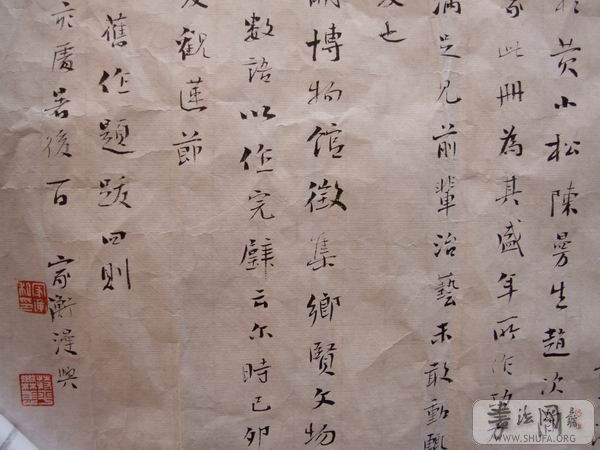 於黄小松陳曼生趙次
此冊為其盛年所作
滿足見前輩治藝未敢動
也
博物館徵集鄉賢文物
數語以作完璧云尔時己卯
觀蓮節
舊作題跋四則
亥處暑後百 家衡漫興
書法网
WWW.SHUFA.ORG